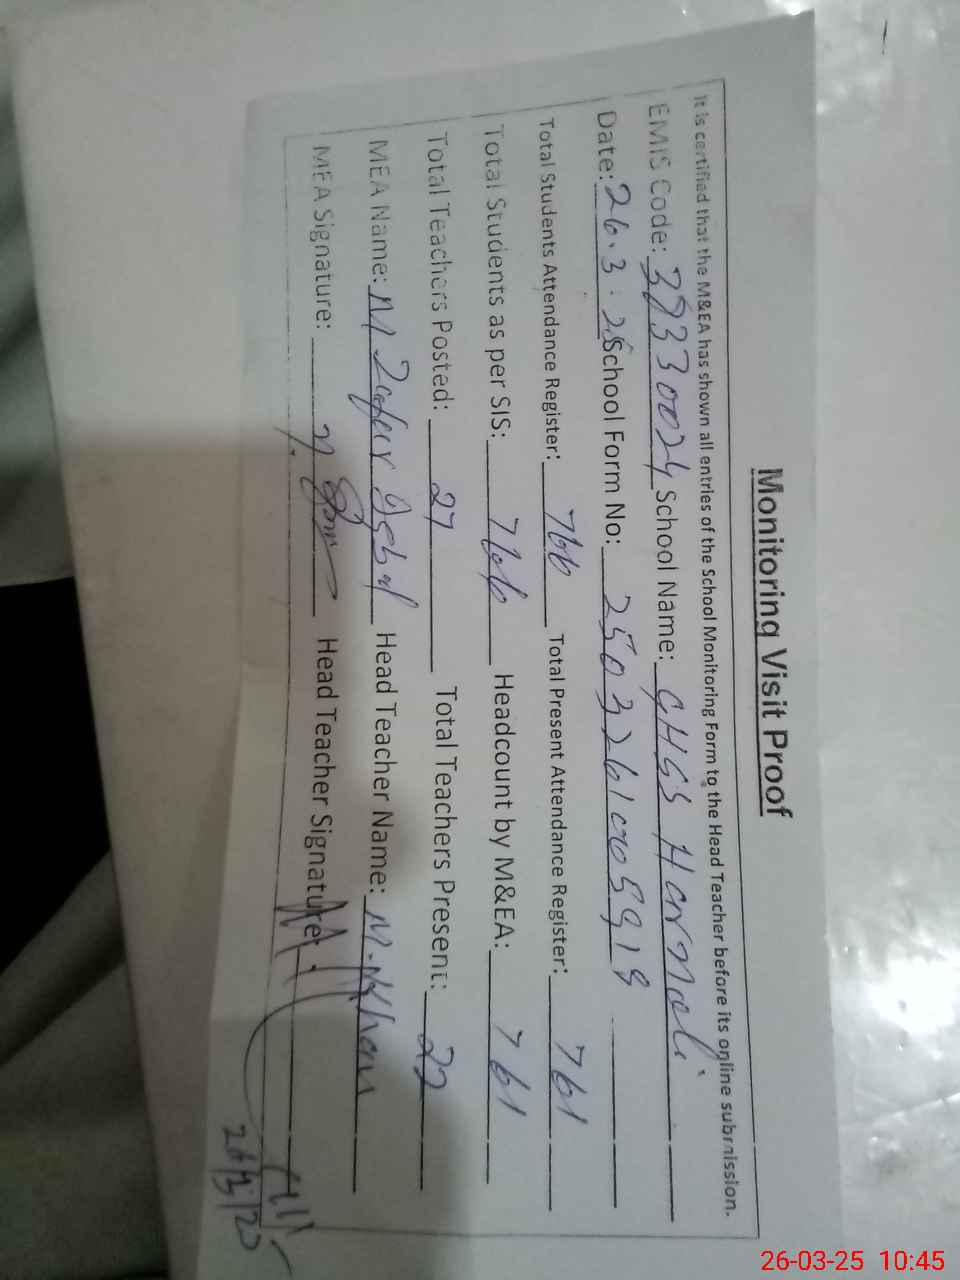 Monitoring Visit Proof
It is certified that the M&EA has shown all entries of the School Monitoring Form to the Head Teacher before its online submission.
EMIS Code: 38330024 School Name: GHSS Harnoli
Date: 26.3.25 School Form No:
Total Students Attendance Register: 766 Total Present Attendance Register: 761
Total Students as per SIS: 766 Headcount by M&EA: 761
Total Teachers Posted: 27 Total Teachers Present: 22
MEA Name: M Zafar Iqbal Head Teacher Name: M. Khan
MEA Signature: Head Teacher Signature:
26-03-25 10:45